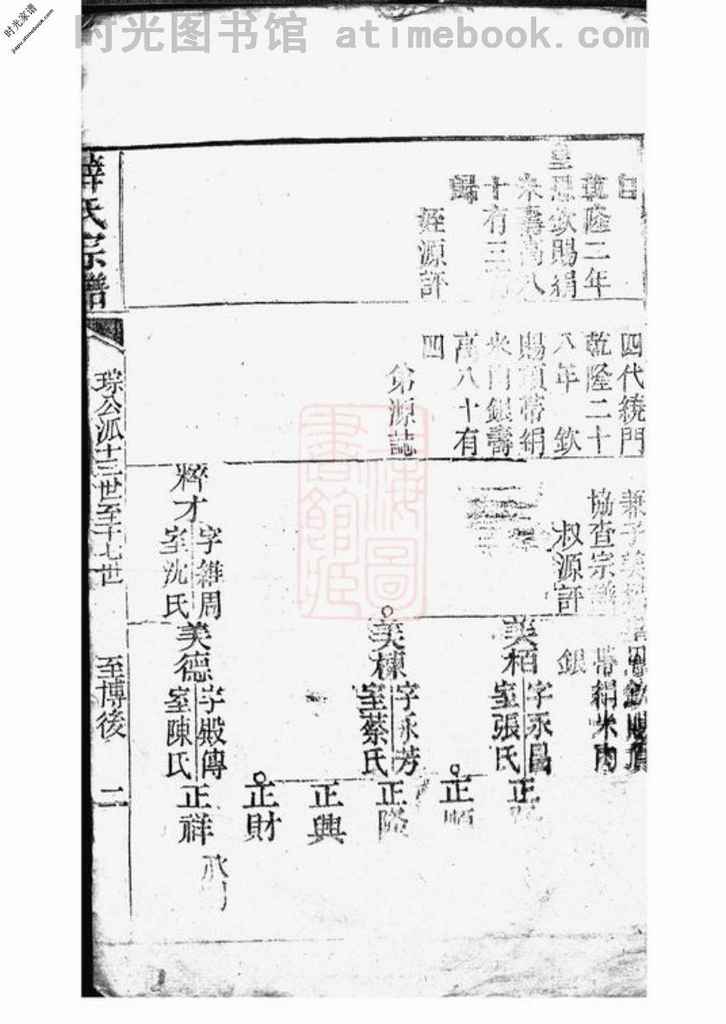 时光图书馆 atimebook.com
时光家谱
jiapu.atimebook.com
乾隆二年
皇恩欽賜絹
米壽高八
十有三
歸
姪源評
四代統門
乾隆二十
八年 欽
賜頂帶絹
米肉銀壽
高八十有
四
弟源誌
協查宗譜
叔源評
帶絹米肉
銀
美栢
字永昌
室張氏
正
正順
美棟
字永芳
室蔡氏
正隆
正興
正財
才
字維周
室沈氏
美德
字殿傳
室陳氏
正祥
薛氏宗譜
琮公派十三世至十七世
至博後
二